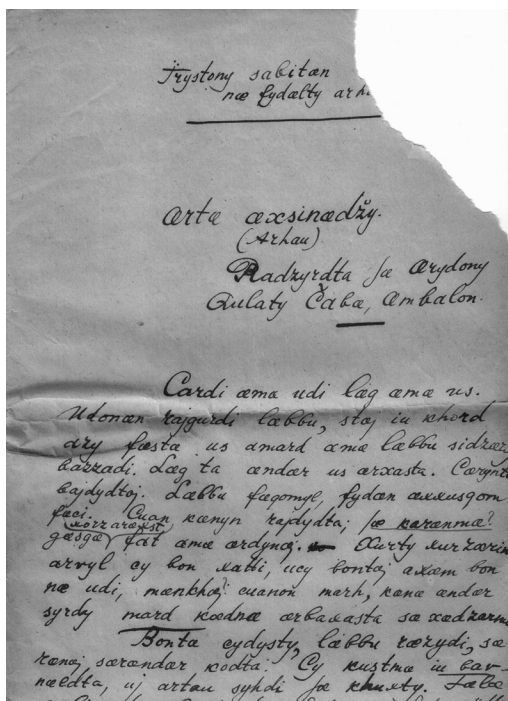 Trystony sabitæn
næ fydælty arh
Ærtæ æxsinædžy.
(Arhau)
Radzyrdta jæ Ærydony
Qulaty Čabæ, Æmbalon.
Cardi æma udi læg æmæ us.
Udonæn rajgurdi læbbu, stæj iu khord
azy fæstæ us amard æmæ læbbu sidzær
bazzadi. Læg ta ændær us ærxasta. Cæryntæ
bajdydtoj. Læbbu fægomyl, fydæn æxxusgom
fæci. Cuan kænyn rajdydta;
xorz aræxst
fat æmæ ærdynæj. Xurty xurzærin
arvyl cy bon xatti, ucy bontæj axæm bon
næ udi, mænkhæj cuanon marh, kænæ ændær
syrdy mard kædnæ ærbaxasta sæ xædzarmæ
Bonta cydysty, læbbu ræzydi, sæ
rænæj særændær kodta. Cy kustmæ iu bav-
nældta, uj artau syhdi jæ khuxty.